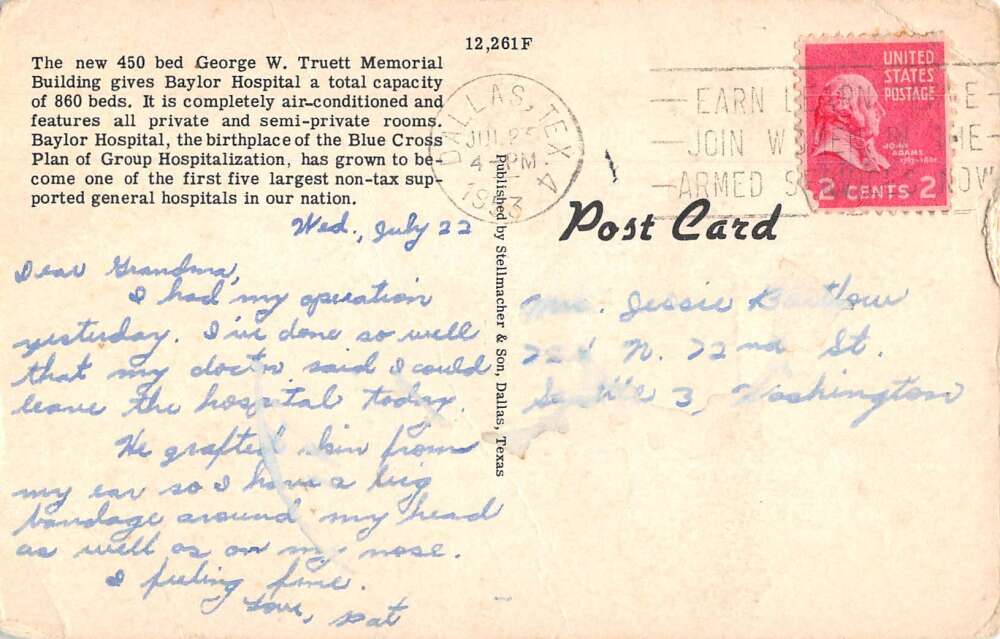 12,261F
The new 450 bed George W. Truett Memorial
Building gives Baylor Hospital a total capacity
of 860 beds. It is completely air-conditioned and
features all private and semi-private rooms.
Baylor Hospital, the birthplace of the Blue Cross
Plan of Group Hospitalization, has grown to be-
come one of the first five largest non-tax sup-
ported general hospitals in our nation.
DALLAS, TEX. 4
JUL 25
4 PM
1953
EARN
JOIN
ARMED NOW
UNITED
STATES
POSTAGE
JOHN
ADAMS
2 CENTS 2
Post Card
Published by Stellmacher & Son, Dallas, Texas
Wed., July 22
Dear Grandma,
I had my operation
yesterday. I've done so well
that my doctor said I could
leave the hospital today.
He grafted skin from
my ear so I have a big
bandage around my head
as well as on my nose.
I feeling fine.
Love, Pat
Mrs. Jessie
N. 72nd St.
Seattle 3, Washington